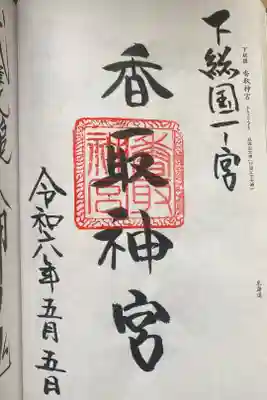 下総国 香取神宮
下総国一ノ宮
香取神宮
香取神宮
令和六年五月五日